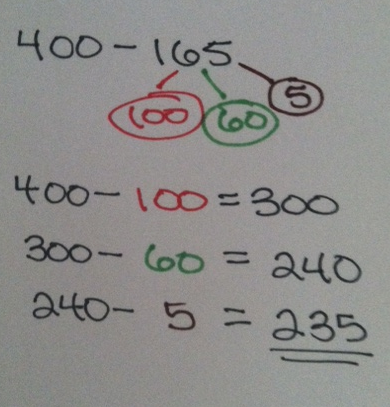 400 - 165
100 60 5
400 - 100 = 300
300 - 60 = 240
240 - 5 = 235